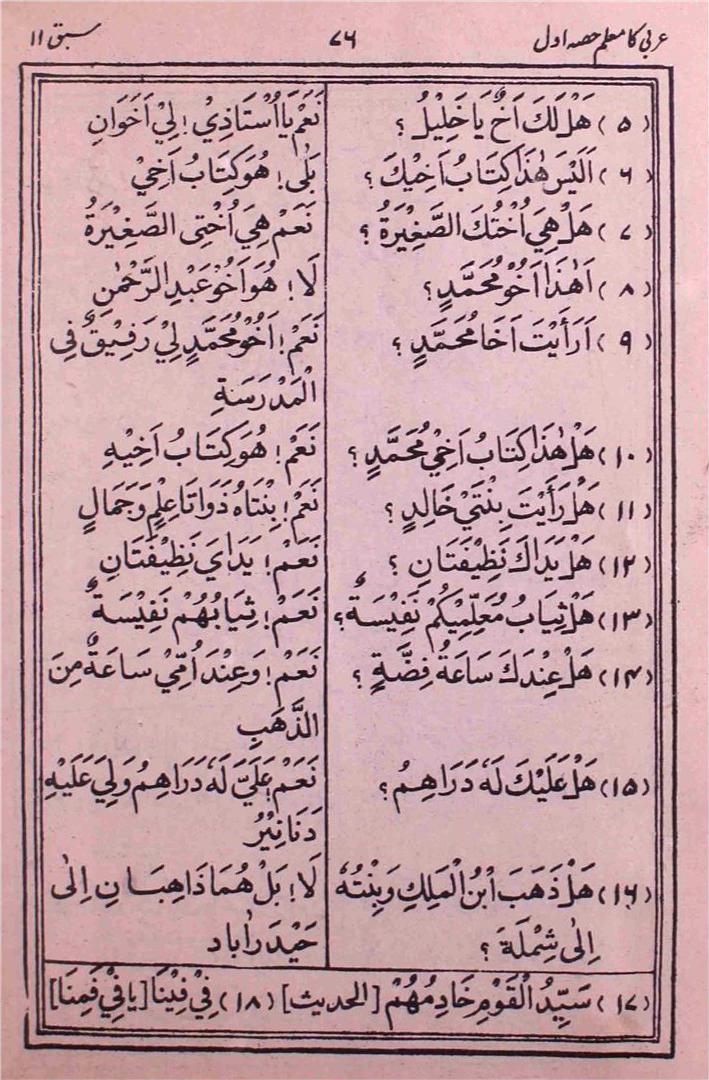 عربی کا معلم حصہ اول ۷۶ سبق ۱۱
(۵) هَلْ لَكَ اَخٌ يَا خَلِيْلُ؟ نَعَمْ يَا اُسْتَاذِيْ! لِيْ اَخَوَانِ
(۶) اَلَيْسَ هٰذَا كِتَابُ اَخِيْكَ؟ بَلٰى! هُوَ كِتَابُ اَخِيْ
(۷) هَلْ هِيَ اُخْتُكَ الصَّغِيْرَةُ؟ نَعَمْ هِيَ اُخْتِى الصَّغِيْرَةُ
(۸) اَهٰذَا اَخُوْ مُحَمَّدٍ؟ لَا! هُوَ اَخُوْ عَبْدِ الرَّحْمٰنِ
(۹) اَرَأَيْتَ اَخَا مُحَمَّدٍ؟ نَعَمْ! اَخُوْ مُحَمَّدٍ لِيْ رَفِيْقٌ فِى
الْمَدْرَسَةِ
(۱۰) هَلْ هٰذَا كِتَابُ اَخِيْ مُحَمَّدٍ؟ نَعَمْ! هُوَ كِتَابُ اَخِيْهِ
(۱۱) هَلْ رَأَيْتَ بِنْتَيْ خَالِدٍ؟ نَعَمْ! بِنْتَاهُ ذَوَاتَا عِلْمٍ وَجَمَالٍ
(۱۲) هَلْ يَدَاكَ نَظِيْفَتَانِ؟ نَعَمْ! يَدَايَ نَظِيْفَتَانِ
(۱۳) هَلْ ثِيَابُ مُعَلِّمِيْكُمْ نَفِيْسَةٌ؟ نَعَمْ! ثِيَابُهُمْ نَفِيْسَةٌ
(۱۴) هَلْ عِنْدَكَ سَاعَةُ فِضَّةٍ؟ نَعَمْ! وَعِنْدَ اُمِّيْ سَاعَةٌ مِنَ
الذَّهَبِ
(۱۵) هَلْ عَلَيْكَ لَهٗ دَرَاهِمُ؟ نَعَمْ! عَلَيَّ لَهٗ دَرَاهِمُ وَلِيَ عَلَيْهِ
دَنَانِيْرُ
(۱۶) هَلْ ذَهَبَ ابْنُ الْمَلِكِ وَبِنْتُهٗ لَا! بَلْ هُمَا ذَاهِبَانِ اِلٰى
اِلٰى شِمْلَةَ؟ حَيْدَراٰباد
(۱۷) سَيِّدُ الْقَوْمِ خَادِمُهُمْ [الحديث] (۱۸) فِيْ فِيْنَا [يا فِيْ فَمِنَا]